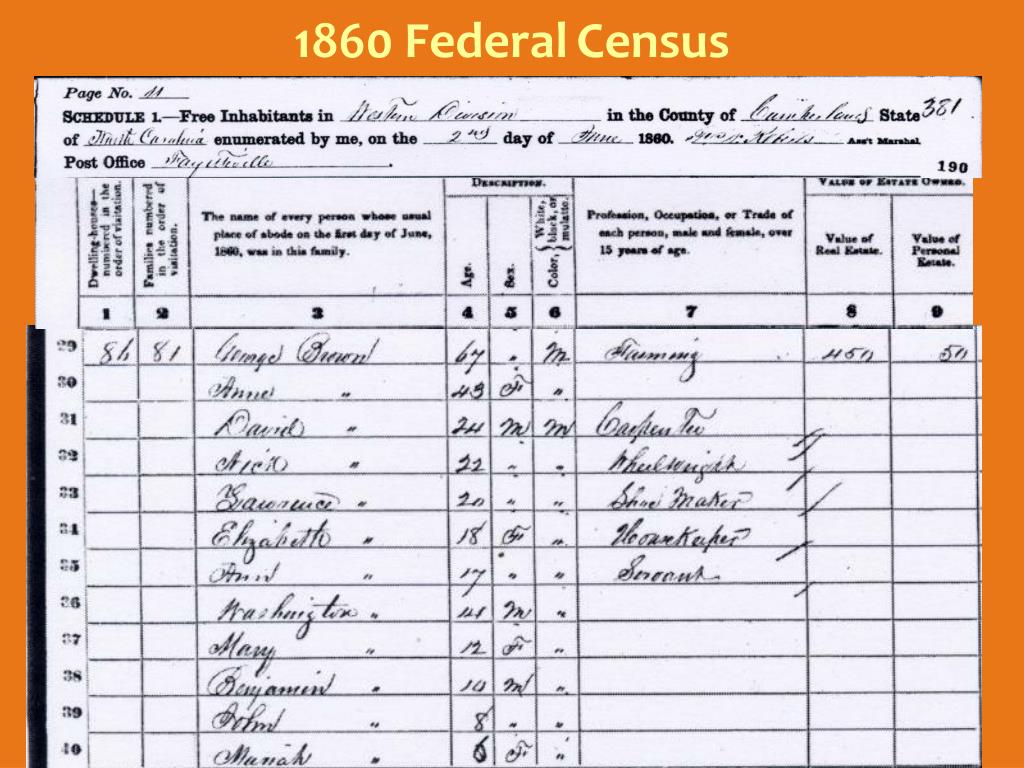 1860 Federal Census
Page No. 11
SCHEDULE 1.—Free Inhabitants in Western Division in the County of Cumberland State 381
of North Carolina enumerated by me, on the 2nd day of June 1860. Ass't Marshal
Post Office Fayetteville
190
Dwelling-houses—numbered in the order of visitation.
Families numbered in the order of visitation.
The name of every person whose usual
place of abode on the first day of June,
1860, was in this family.
DESCRIPTION.
Age.
Sex.
Color, { White, black, or mulatto.
Profession, Occupation, or Trade of
each person, male and female, over
15 years of age.
VALUE OF ESTATE OWNED.
Value of
Real Estate.
Value of
Personal
Estate.
1 2 3 4 5 6 7 8 9
29 81 George Brown 67 " M Farming 450 50
30 Anne " 43 F "
31 David " 24 M M Carpenter
32 Nick " 22 " " Wheelwright
33 Lawrence " 20 " " Shoe Maker
34 Elizabeth " 18 F " Housekeeper
35 Ann " 17 " " Servant
36 Washington " M "
37 Mary " 12 F "
38 Benjamin " 10 M "
39 John " 8 " "
40 Mariah " 6 F "